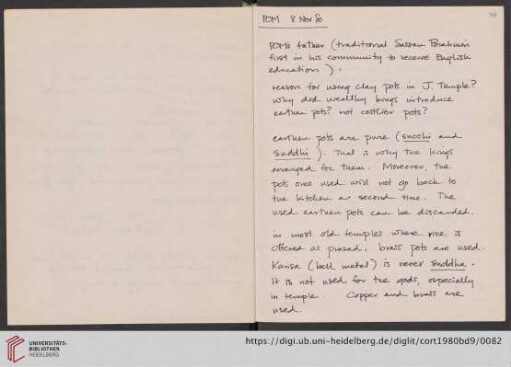 POM 8 Nov 80
79
POM's father (traditional Sasan Brahmin
first in his community to receive English
education).
reason for using clay pots in J. Temple?
Why did wealthy kings introduce
earthen pots? not costlier pots?
earthen pots are pure (succhi and
suddhi). That is why the kings
arranged for them. Moreover, the
pots once used will not go back to
the kitchen a second time. The
used earthen pots can be discarded.
in most old temples where rice is
offered as prasad, brass pots are used.
Kansa (bell metal) is never suddha.
It is not used for the gods, especially
in temple. Copper and brass are
used.
UNIVERSITÄTS-
BIBLIOTHEK
HEIDELBERG
https://digi.ub.uni-heidelberg.de/diglit/cort1980bd9/0082